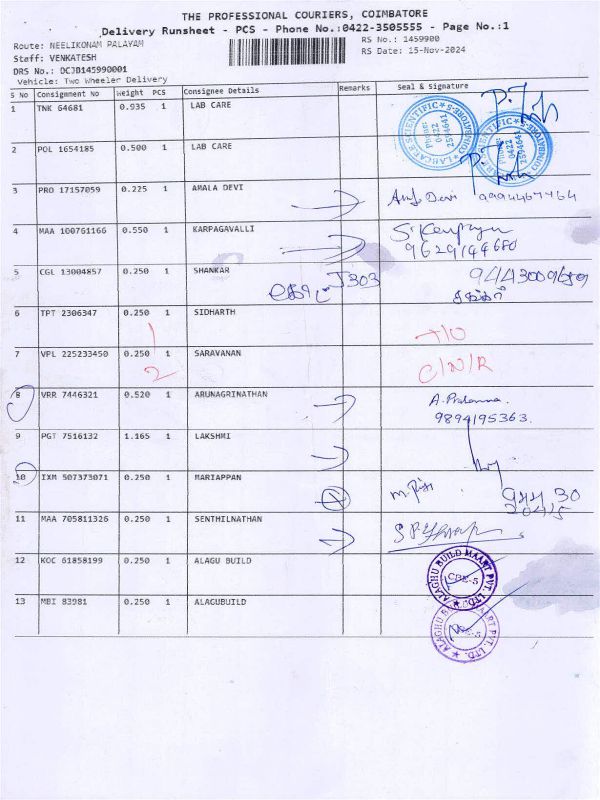 THE PROFESSIONAL COURIERS, COIMBATORE
Delivery Runsheet - PCS - Phone No.:0422-3505555 - Page No.:1
Route: NEELIKONAM PALAYAM
RS No.: 1459900
Staff: VENKATESH
RS Date: 15-Nov-2024
DRS No.: OCJD145990001
Vehicle: Two Wheeler Delivery
S No Consignment No Weight PCS Consignee Details Remarks Seal & Signature
1 TNK 64681 0.935 1 LAB CARE
LABCARE SCIENTIFIC Phone: 0422 2594641 COIMBATORE-5
2 POL 1654185 0.500 1 LAB CARE
Phone: 0422 2594641 COIMBATORE-5
3 PRO 17157059 0.225 1 AMALA DEVI
Devi 9994467464
4 MAA 100761166 0.550 1 KARPAGAVALLI
5 CGL 13004857 0.250 1 SHANKAR
J303
6 TPT 2306347 0.250 1 SIDHARTH
1
7 VPL 225233450 0.250 1 SARAVANAN
2 C/N/R
8 VRR 7446321 0.520 1 ARUNAGRINATHAN
9894195363.
9 PGT 7516132 1.165 1 LAKSHMI
10 IXM 507373071 0.250 1 MARIAPPAN
11 MAA 705811326 0.250 1 SENTHILNATHAN
12 KOC 61858199 0.250 1 ALAGU BUILD
ALAGHU BUILD MAART PVT. LTD. CBE-5
13 MBI 83981 0.250 1 ALAGUBUILD